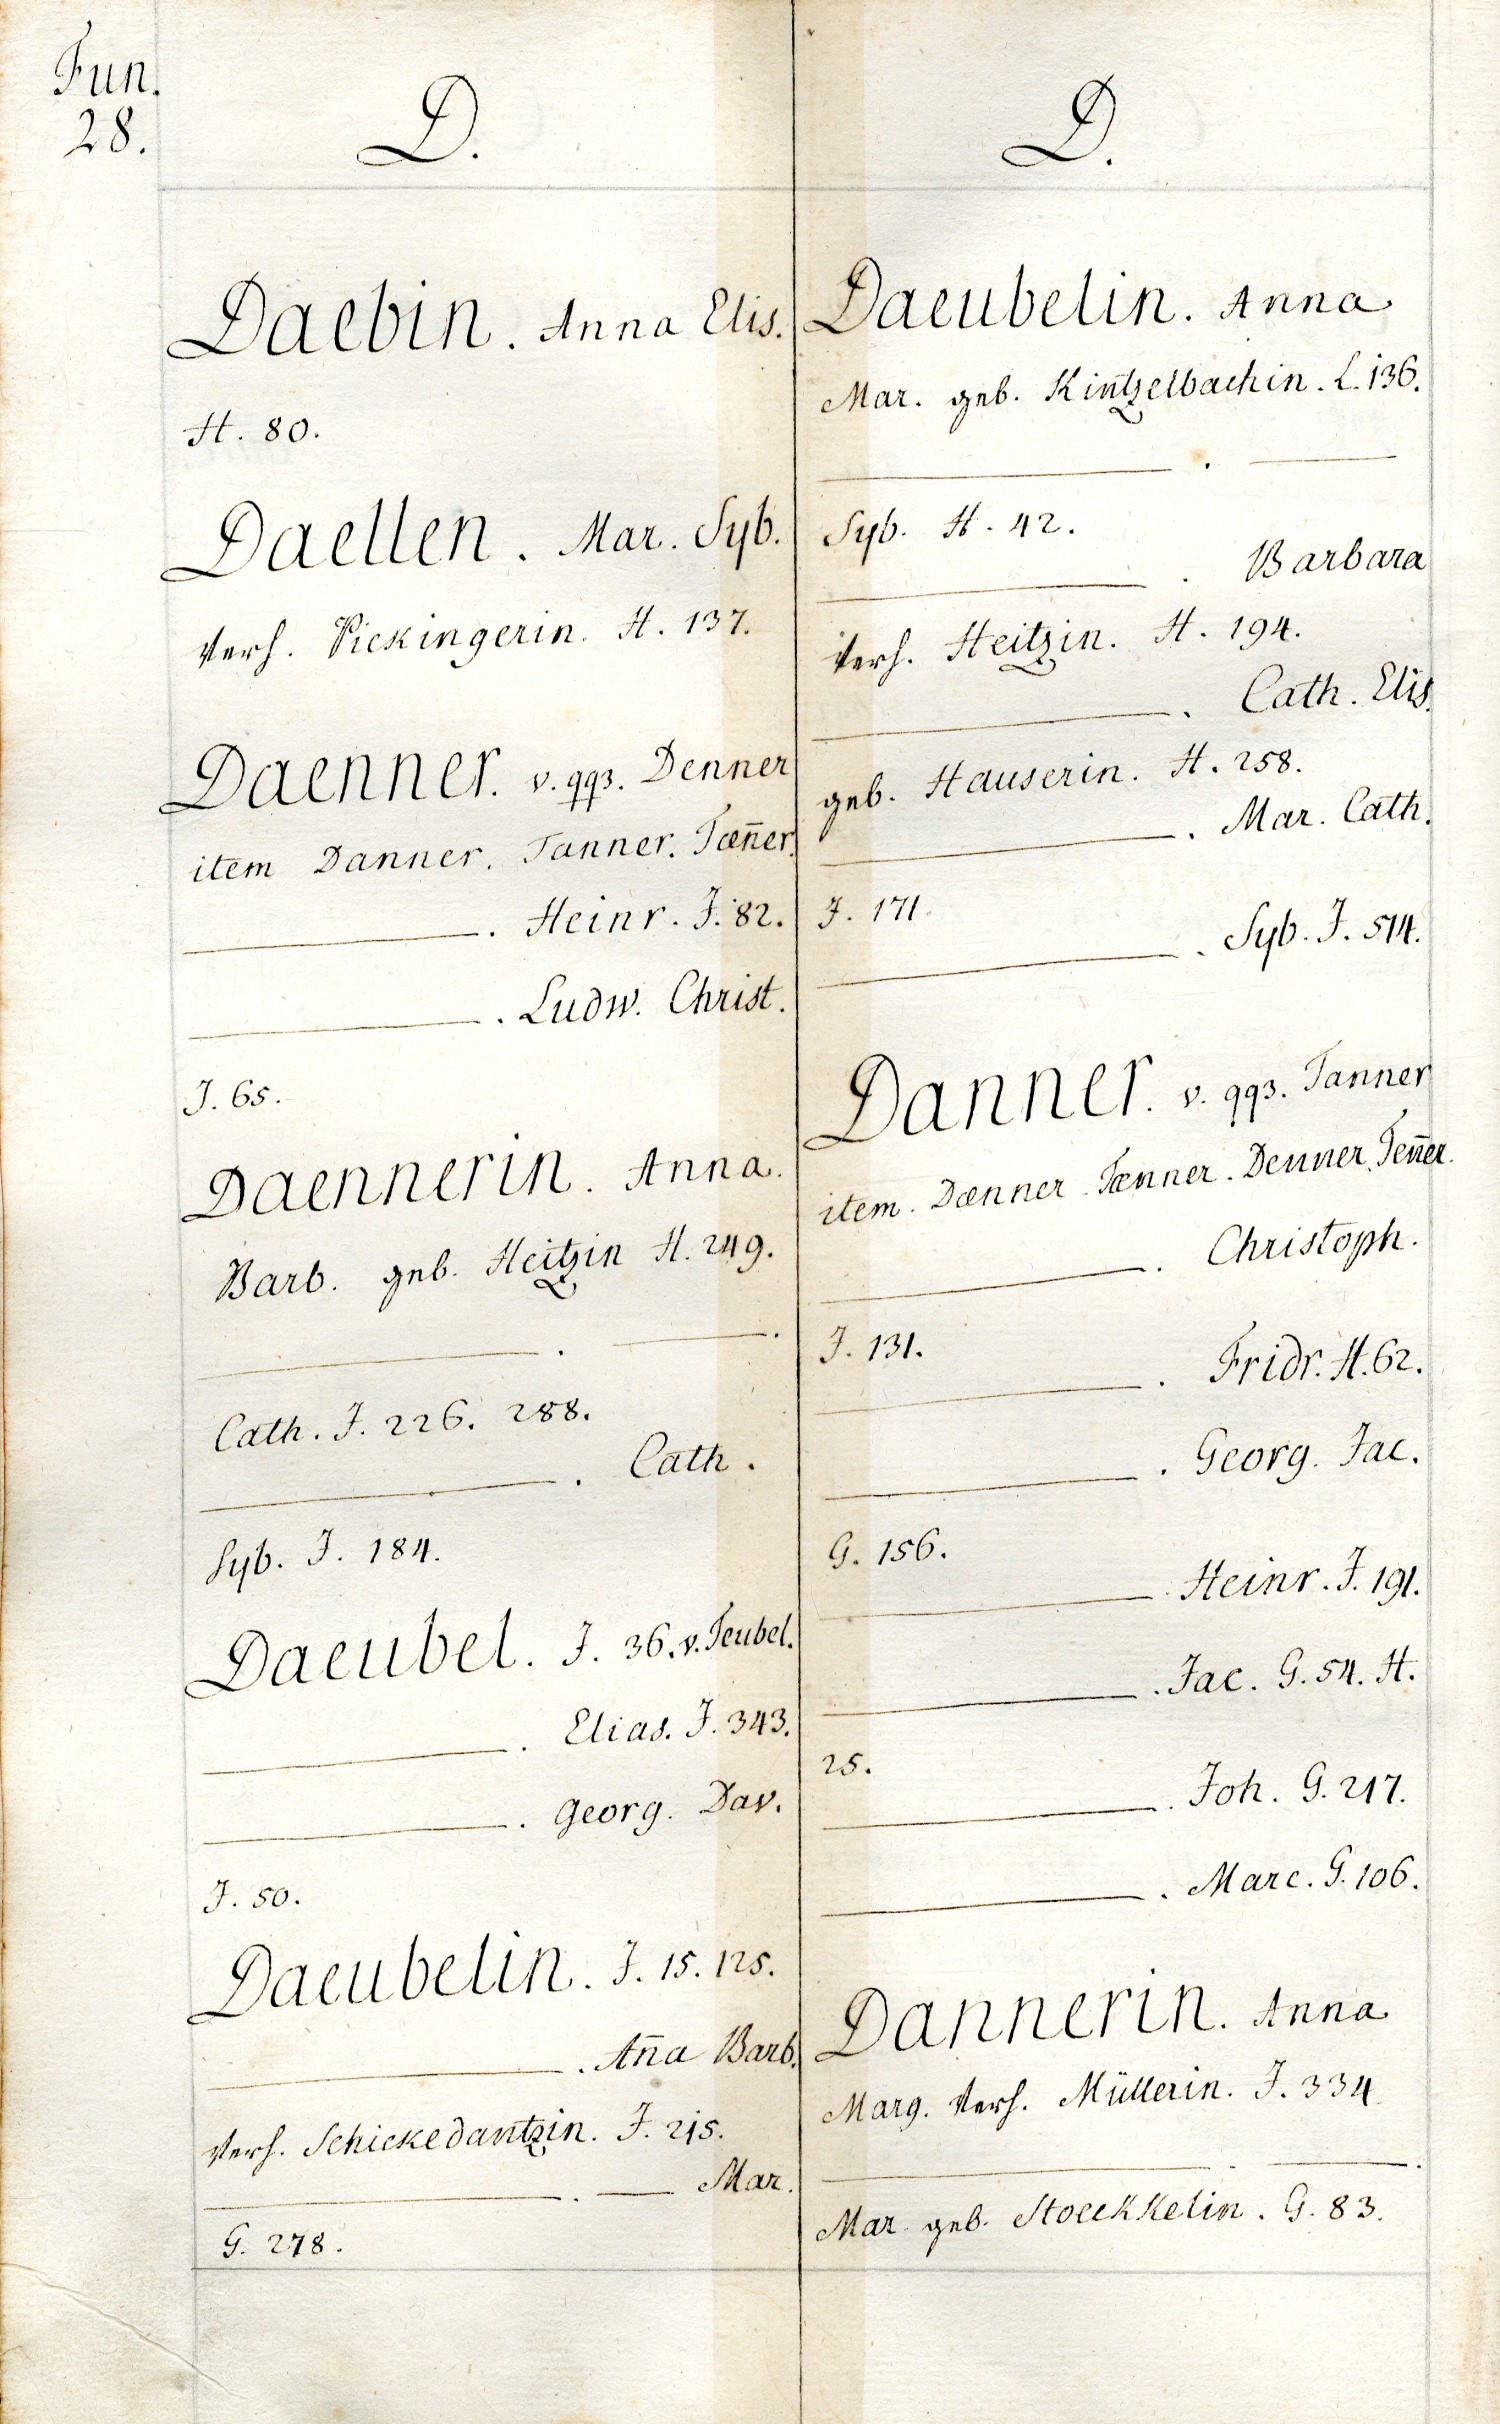 Fun.
28.
D.
Daebin. Anna Elis.
H. 80.
Daellen. Mar. Syb.
Verh. Pickingerin. H. 137.
Daenner. v. qq3. Denner
item Danner. Tanner. Tæn̄er.
———. Heinr. J. 82.
———. Ludw. Christ.
J. 65.
Daennerin. Anna.
Barb. geb. Heitzin H. 249.
———. ———.
Cath. J. 226. 288.
———. Cath.
Syb. J. 184.
Daeubel. J. 36. v. Teubel.
———. Elias. J. 343.
———. Georg. Dav.
J. 50.
Daeubelin. J. 15. 125.
———. An̄a Barb.
Verh. Schickedantzin. J. 215.
———. —— Mar.
G. 278.
D.
Daeubelin. Anna
Mar. geb. Kintzelbachin. L. 136.
———. ———
Syb. H. 42.
———. Barbara
Verh. Heitzin. H. 194.
———. Cath. Elis.
geb. Hauserin. H. 258.
———. Mar. Cath.
J. 171.
———. Syb. J. 514.
Danner. v. qq3. Tanner
item. Dænner. Tænner. Denner. Ten̄er.
———. Christoph.
J. 131.
———. Fridr. H. 62.
———. Georg. Jac.
G. 156.
——— Heinr. J. 191.
———. Jac. G. 54. H.
25.
———. Joh. G. 217.
———. Marc. G. 106.
Dannerin. Anna
Marg. Verh. Müllerin. J. 334
———. ———.
Mar. geb. Stoeckkelin. G. 83.